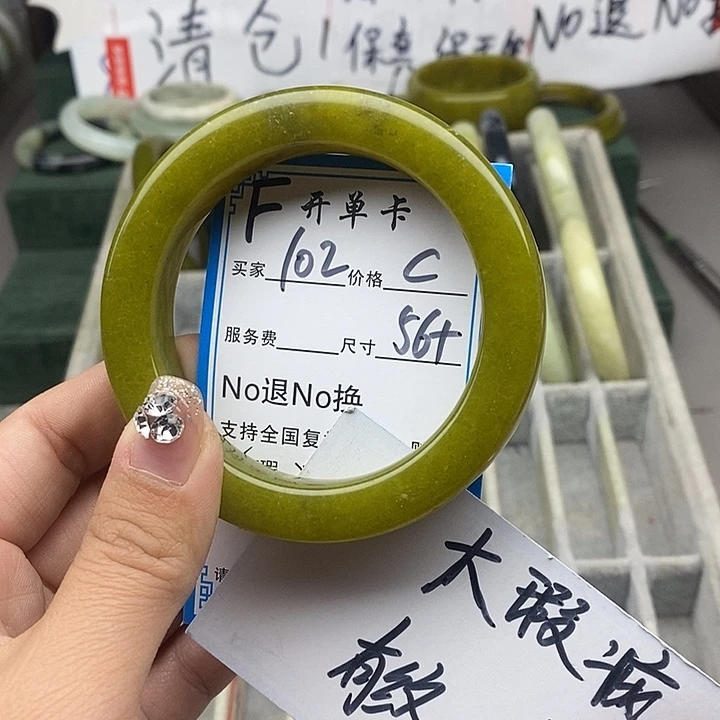 清仓
保真
No退No
F 开单卡
买家 102 价格 C
服务费 尺寸 56+
No退No换
支持全国复
请
大瑕疵
有纹